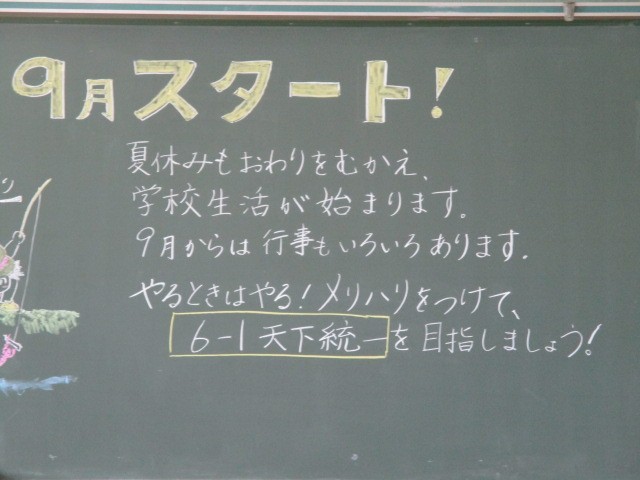 9月スタート!
夏休みもおわりをむかえ、
学校生活が始まります。
9月からは行事もいろいろあります。
やるときはやる!メリハリをつけて、
6-1天下統一を目指しましょう!